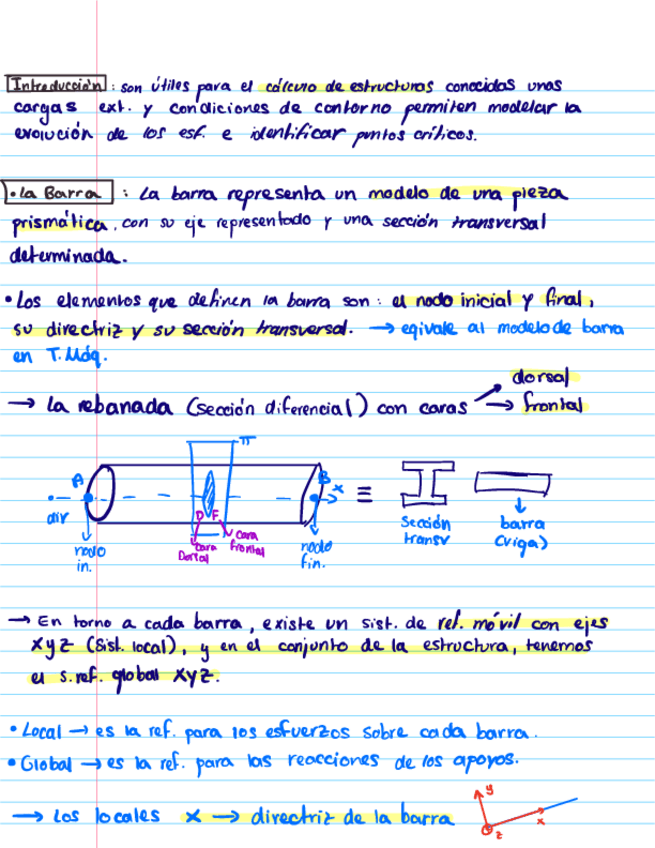 Introducción : son útiles para el cálculo de estructuras conocidas unas
cargas ext. y condiciones de contorno permiten modelar la
evolución de los esf. e identificar puntos críticos.
• La Barra : La barra representa un modelo de una pieza
prismática, con su eje representado y una sección transversal
determinada.
• Los elementos que definen la barra son : el nodo inicial y final,
su directriz y su sección transversal. → eqivale al modelo de barra
en T.Máq.
dorsal
→ La rebanada (sección diferencial) con caras → frontal
π
A B x ≡
D F
dir
nodo
in.
cara
Dorsal
cara
frontal
nodo
fin.
Sección
transv
barra
(viga)
→ En torno a cada barra, existe un sist. de ref. móvil con ejes
xyz (Sist. local), y en el conjunto de la estructura, tenemos
el s.ref. global XYZ.
• Local → es la ref. para los esfuerzos sobre cada barra.
• Global → es la ref. para las reacciones de los apoyos.
→ Los locales x → directriz de la barra
y
x
z